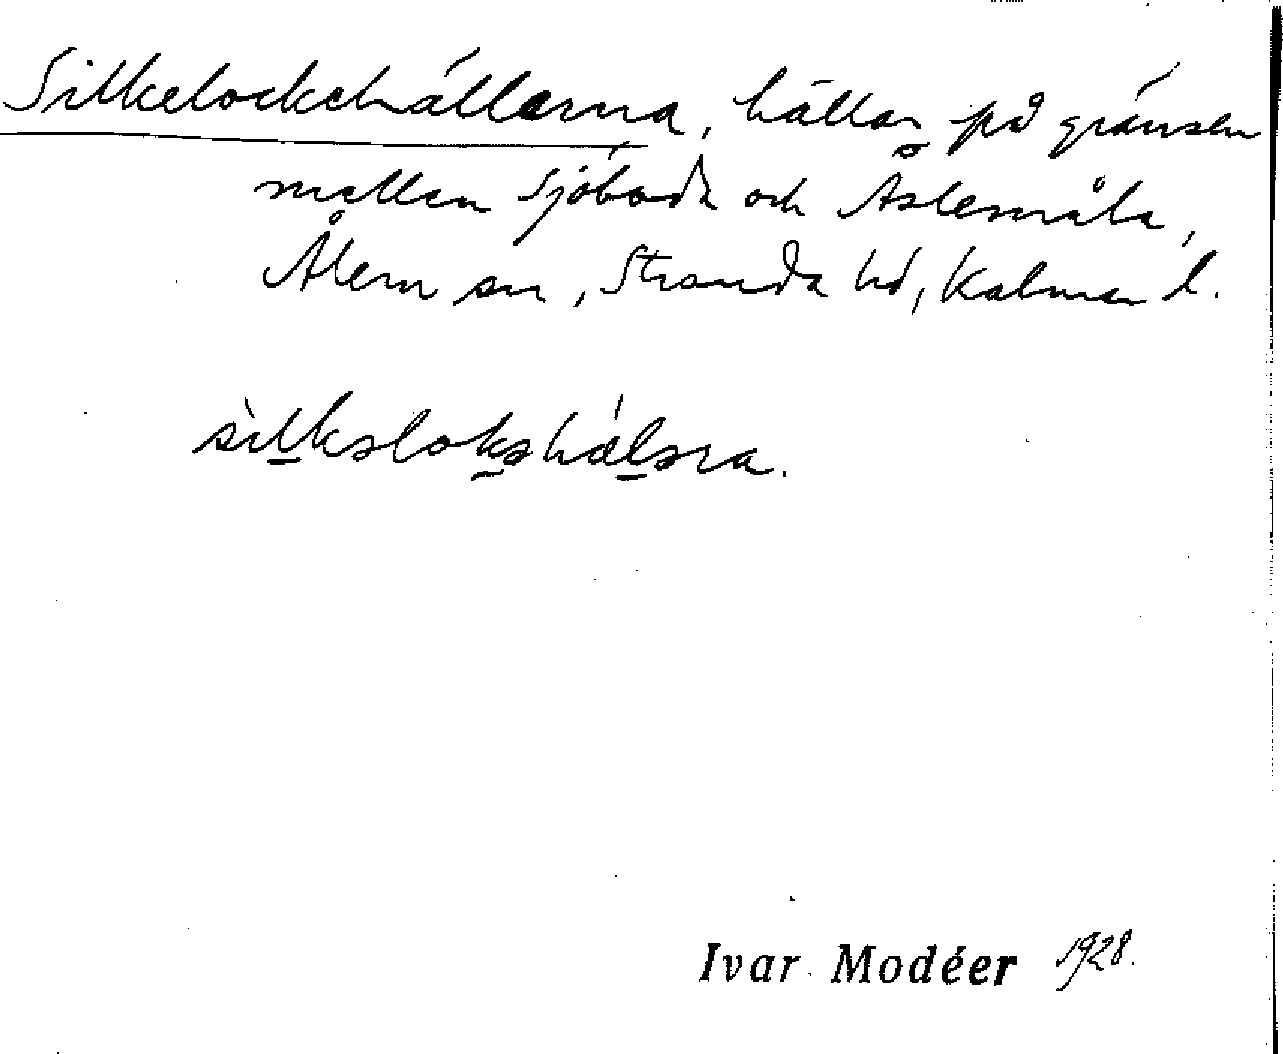 Silkelockehällarna, hällar på gränsen
mellan Sjöboda och Åslemåla,
Ålem sn, Stranda hd, Kalmar l.
silkəlokəhälǝra.
Ivar Modéer 1928.